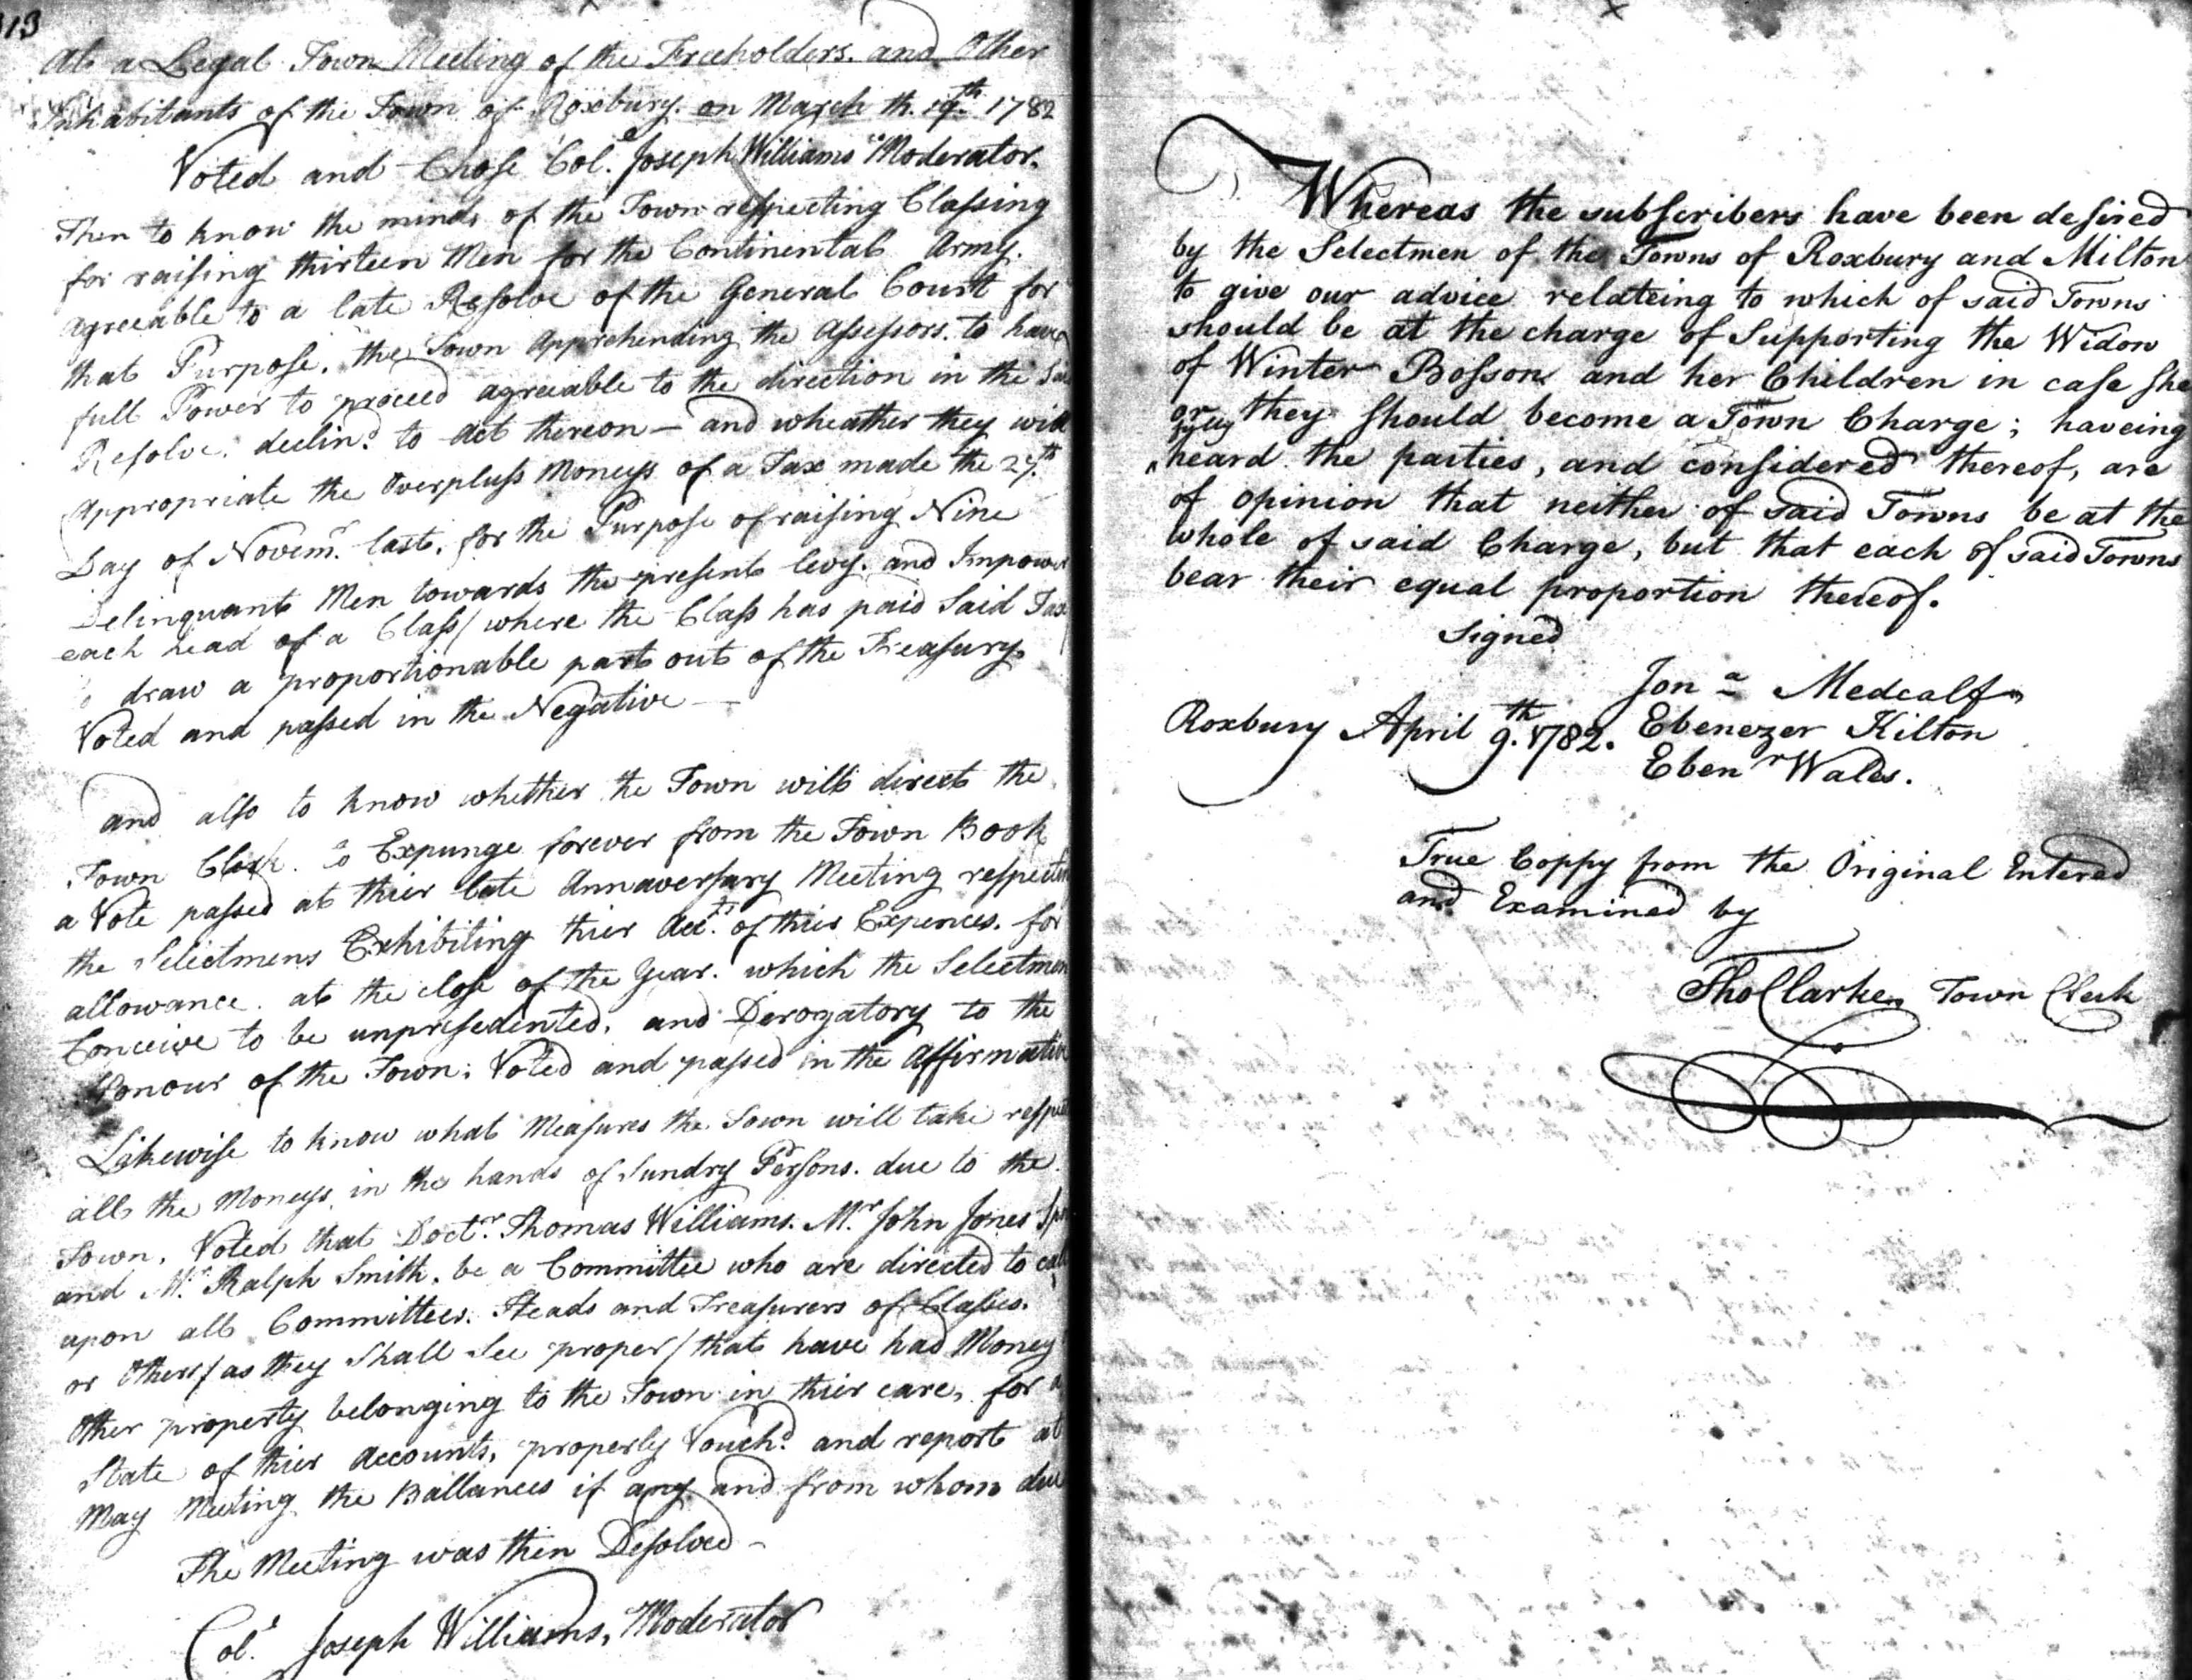 313
At a Legal Town Meeting of the Freeholders. and Other
Inhabitants of the Town of Roxbury. on March th. 19th. 1782
Voted and Chose Col. Joseph Williams Moderator.
Then to know the minds of the Town respecting Classing
for raising thirteen Men for the Continental Army.
agreeable to a late Resolve of the General Court for
that Purpose. the Town Apprehending the Assessors. to have
full Power to proceed agreeable to the direction in the
Resolve. declin.d to Act thereon — and wheather they will
Appropriate the Overpluss Moneys of a Tax made the 27th
Day of Novem.r last. for the Purpose of raising Nine
Delinquant Men towards the present levy. and Impower
each head of a Class/ where the Class has paid Said Tax
draw a proportionable part out of the Treasury
Voted and passed in the Negative —
and also to know whether the Town will direct the
Town Clerk. to Expunge forever from the Town Book
a Vote passed at their late Annaversary Meeting
the Selectmens Exhibiting thier Acc.ts of thier Expences. for
allowance. at the close of the Year. which the Selectmen
Conceive to be unpresedented. and Derogatory to the
Honour of the Town; Voted and passed in the Affirmative
Likewise to know what Measures the Town will take
all the Moneys in the hands of Sundry Persons. due to the
Town. Voted that Doct.r Thomas Williams. M.r John Jones
and M.r Ralph Smith. be a Committee who are directed to call
upon all Committees. Heads and Treasurers of Classes.
or Others/ as they Shall See proper/ that have had Money
Other property belonging to the Town in thier care, for a
State of thier Accounts, properly Vouch.d and report at
May Meeting the Ballances if any and from whom due
The Meeting was then Desolved —
Col.l Joseph Williams, Moderator
Whereas the subscribers have been desired
by the Selectmen of the Towns of Roxbury and Milton
to give our advice relateing to which of said Towns
should be at the charge of Supporting the Widow
of Winter Bosson and her Children in case she
or they should become a Town Charge; haveing
heard the parties, and considered thereof, are
of opinion that neither of said Towns be at the
whole of said Charge, but that each of said Towns
bear their equal proportion thereof.
Signed
Jon.a Medcalf
Roxbury April 9th. 1782. Ebenezer Kilton
Eben.r Wales.
True Coppy from the Original Entered
and Examined by
Tho Clarke Town Clerk